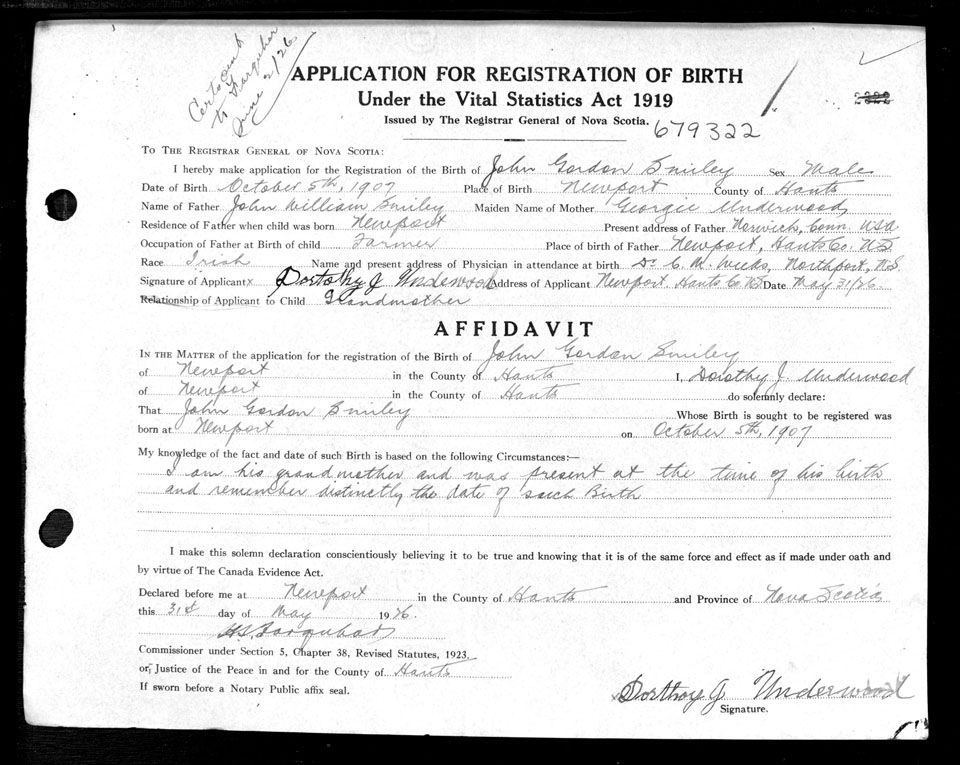 Cert sent
to Farquhar
June 2/26
APPLICATION FOR REGISTRATION OF BIRTH
Under the Vital Statistics Act 1919
Issued by The Registrar General of Nova Scotia.
679322
TO THE REGISTRAR GENERAL OF NOVA SCOTIA:
I hereby make application for the Registration of the Birth of John Gordon Smiley Sex Male
Date of Birth October 5th, 1907 Place of Birth Newport County of Hants
Name of Father John William Smiley Maiden Name of Mother Georgie Underwood
Residence of Father when child was born Newport Present address of Father Norwich, Conn. USA
Occupation of Father at Birth of child Farmer Place of birth of Father Newport, Hants Co. N.S.
Race Irish Name and present address of Physician in attendance at birth Dr C. M. Weeks, Northport, N.S.
Signature of Applicant x Dortohy J Underwood Address of Applicant Newport, Hants Co N.S. Date May 31/26.
Relationship of Applicant to Child Grandmother
AFFIDAVIT
IN THE MATTER of the application for the registration of the Birth of John Gordon Smiley
of Newport in the County of Hants I, Dorothy J. Underwood
of Newport in the County of Hants do solemnly declare:
That John Gordon Smiley Whose Birth is sought to be registered was
born at Newport on October 5th, 1907
My knowledge of the fact and date of such Birth is based on the following Circumstances:—
I am his grandmother and was present at the time of his birth
and remember distinctly the date of such Birth
I make this solemn declaration conscientiously believing it to be true and knowing that it is of the same force and effect as if made under oath and
by virtue of The Canada Evidence Act.
Declared before me at Newport in the County of Hants and Province of Nova Scotia
this 31st day of May 1926.
Farquhar
Commissioner under Section 5, Chapter 38, Revised Statutes, 1923.
or, Justice of the Peace in and for the County of Hants
If sworn before a Notary Public affix seal.
Dorthoy J Underwood
Signature.